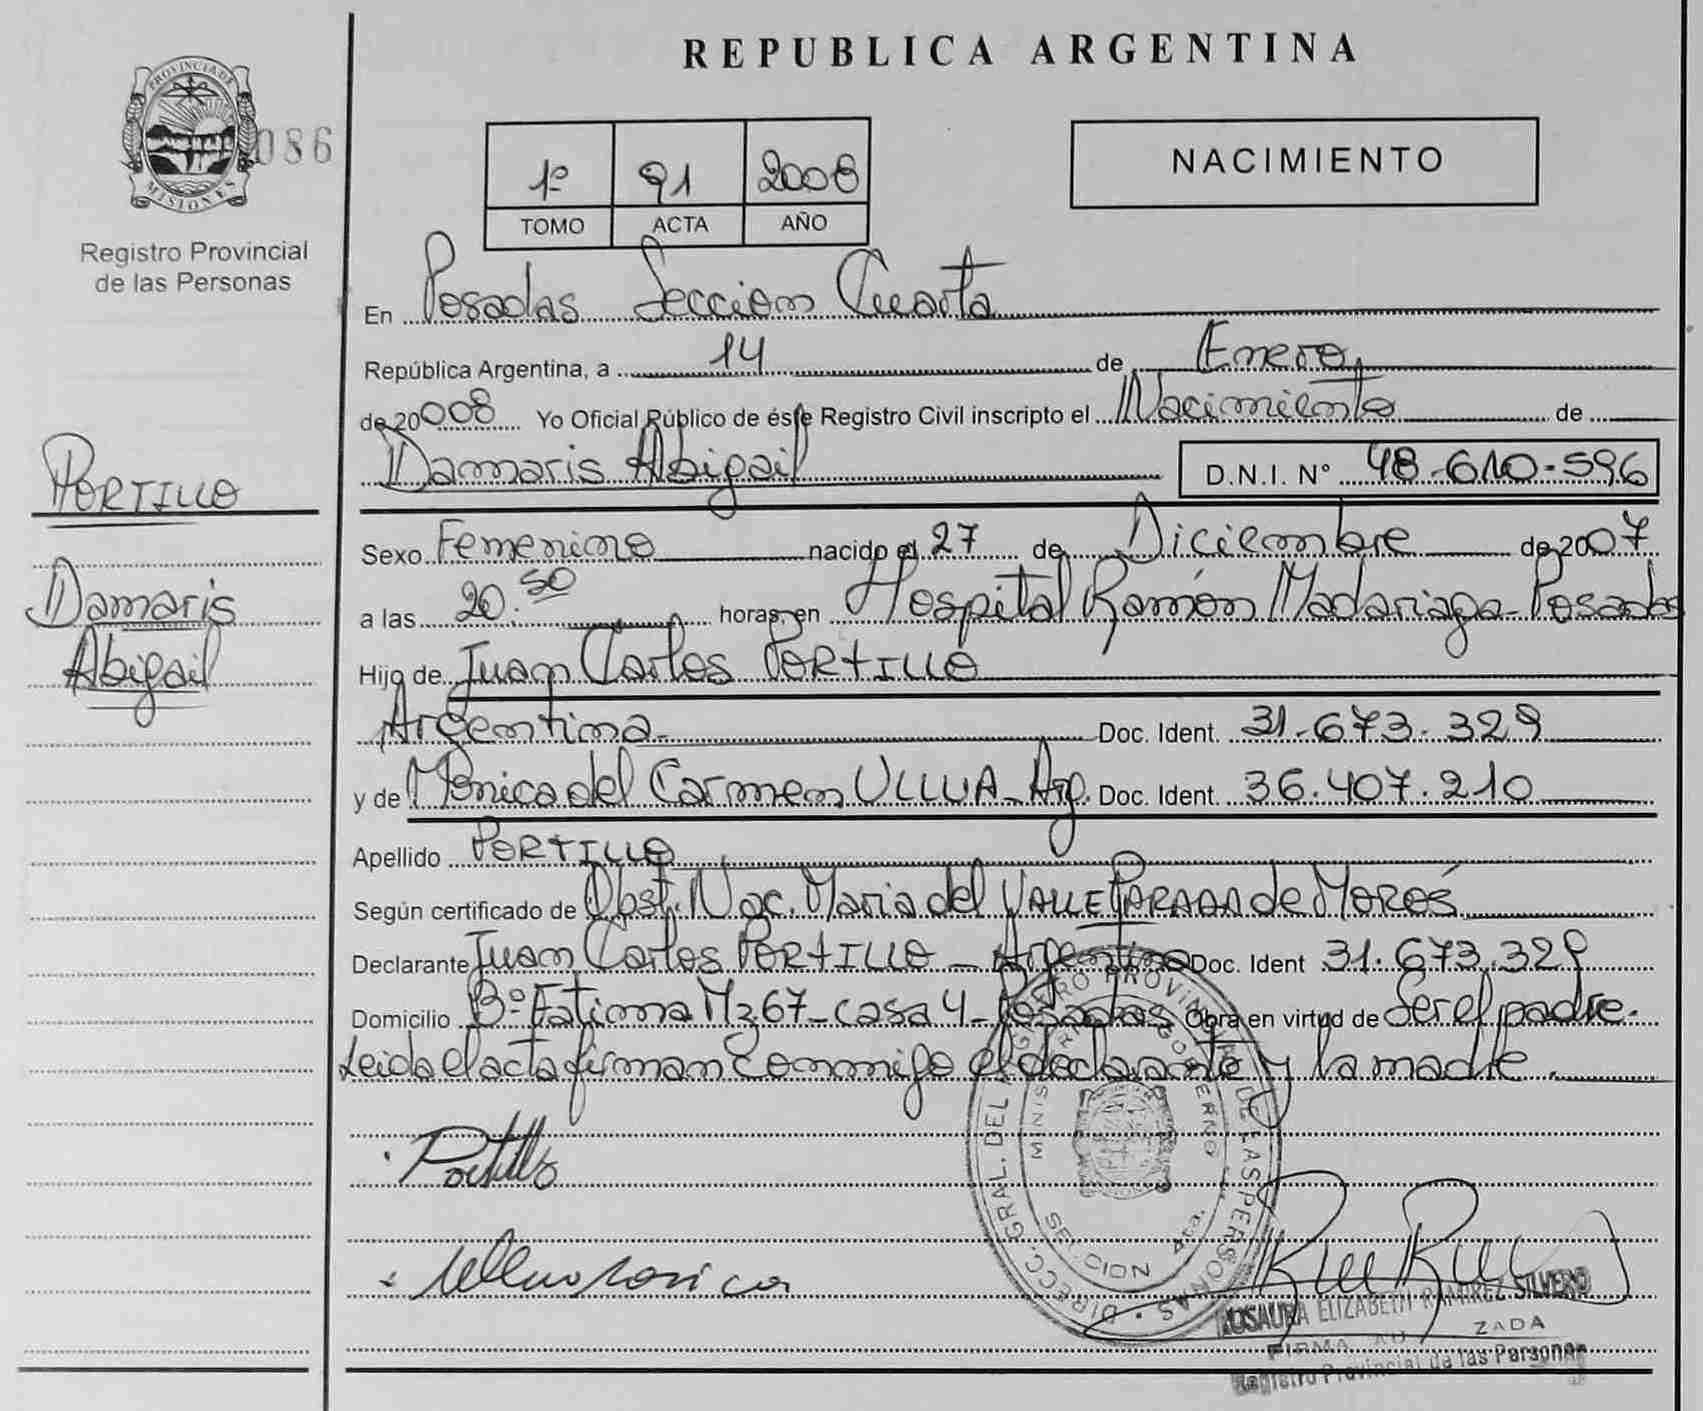 REPUBLICA ARGENTINA
PROVINCIA DE
MISIONES
086
Registro Provincial
de las Personas
1º 91 2008
TOMO ACTA AÑO
NACIMIENTO
En Posadas Seccion Cuarta
República Argentina, a 14 de Enero
de 20008 Yo Oficial Público de éste Registro Civil inscripto el Nacimiento de
Damaris Abigail D.N.I. Nº 48-610-596
PORTILLO
Damaris
Abigail
Sexo Femenino nacido el 27 de Diciembre de 2007
a las 20.50 horas, en Hospital Ramón Madariaga-Posadas
Hijo de Juan Carlos PORTILLO
Argentina- Doc. Ident. 31-673-329
y de Monica del Carmen ULLUA-Arg. Doc. Ident. 36.407.210
Apellido PORTILLO
Según certificado de Obst. Nac. Maria del VALLE PARADA de MORES
Declarante Juan Carlos PORTILLO - Argentino Doc. Ident 31.673.329
Domicilio Bº Fatima Mz 67-casa 4-Posadas Obra en virtud de Ser el padre.
Leida el acta firman conmigo el declarante y la madre.
Portillo
DIRECC. GRAL. DEL REGISTRO PROVINCIAL DE LAS PERSONAS
MINISTERIO GOBIERNO
SECCION 4ta.
ROSAURA ELIZABETH RAMIREZ SILVERO
FIRMA AU ZADA
Registro Provincial de las Personas